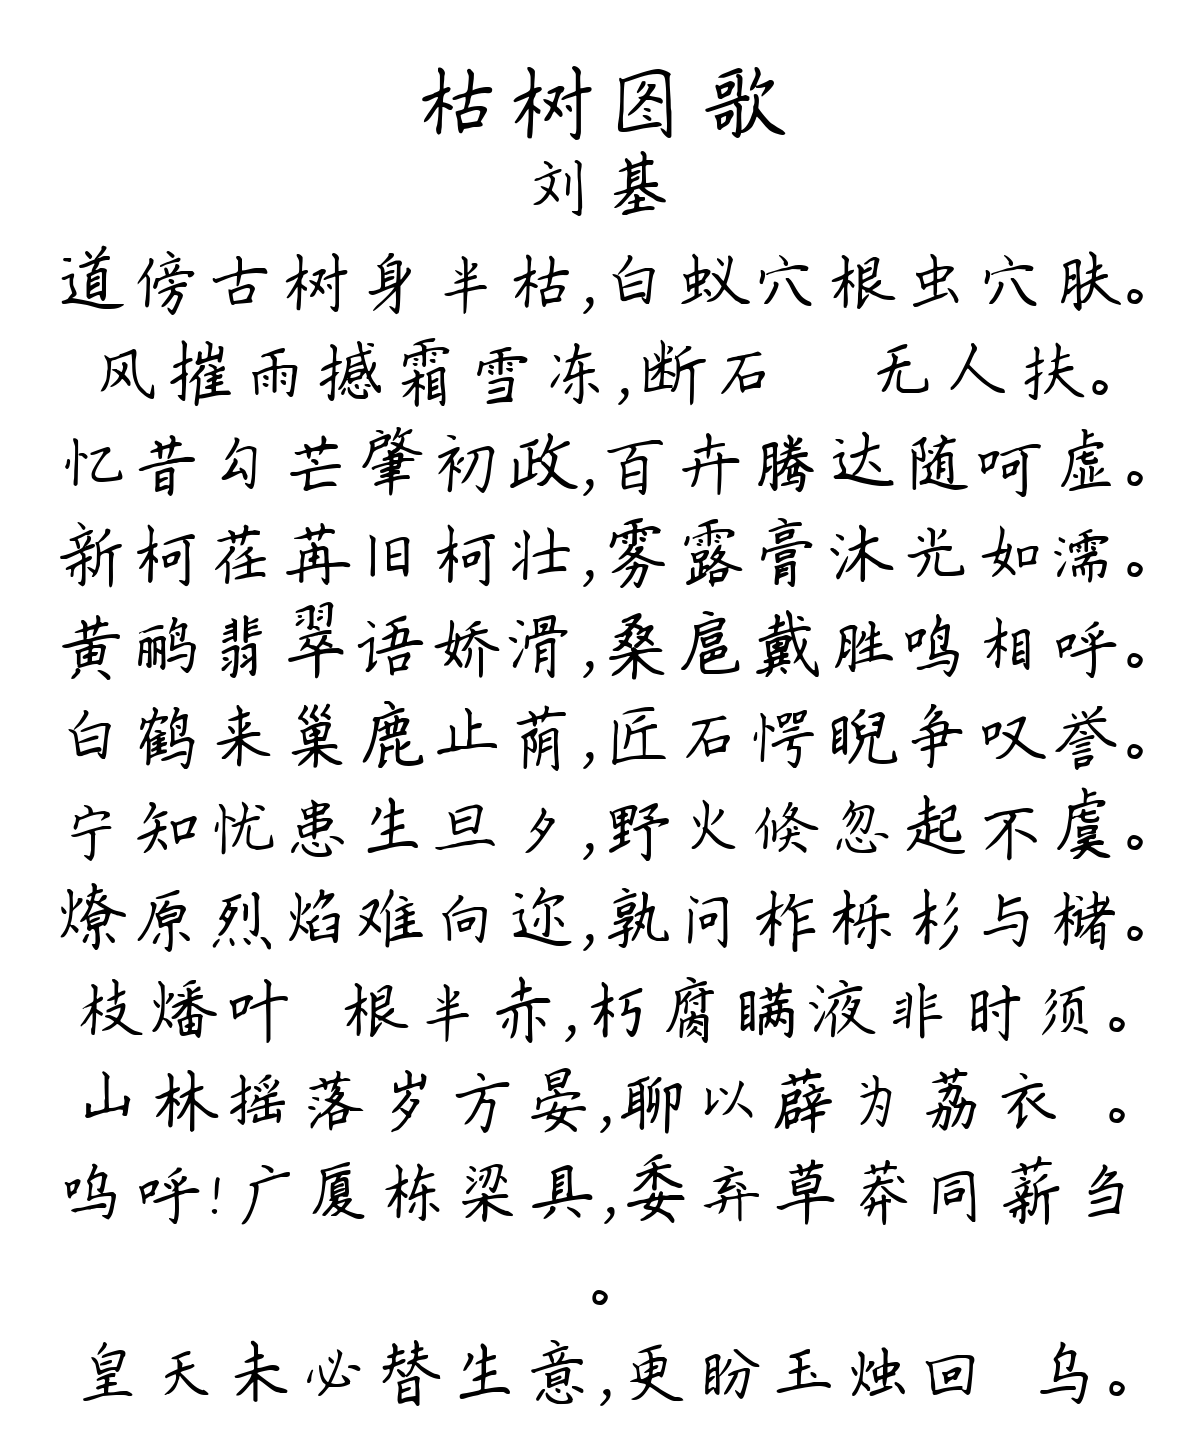 枯树图歌
刘基
道傍古树身半枯,白蚁穴根虫穴肤。
风摧雨撼霜雪冻,断石 无人扶。
忆昔勾芒肇初政,百卉腾达随呵虚。
新柯荏苒旧柯壮,雾露膏沐光如濡。
黄鹂翡翠语娇滑,桑扈戴胜鸣相呼。
白鹤来巢鹿止荫,匠石愕睨争叹誉。
宁知忧患生旦夕,野火倏忽起不虞。
燎原烈焰难向迩,孰问柞栎杉与槠。
枝燔叶 根半赤,朽腐瞒液非时须。
山林摇落岁方晏,聊以薜为荔衣 。
呜呼!广厦栋梁具,委弃草莽同薪刍
。
皇天未必替生意,更盼玉烛回 乌。